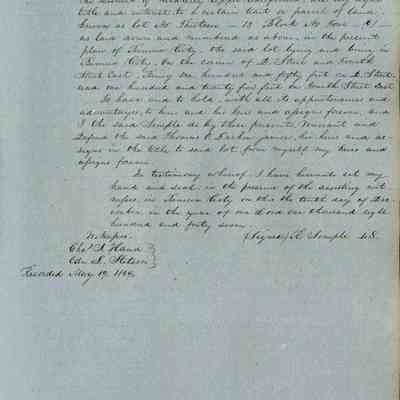 title and interest to a certain tract or parcel of land,
known as lot No. Thirteen — 13 Block No. Four — (4) —
as laid down and numbered as above, in the present
plan of Benicia City, the said lot lying and being in
Benicia City, on the corner of D. Street and Fourth
Street East, being one hundred and fifty feet on D. Street,
and one hundred and twenty five feet on Fourth Street East.
To have and to hold, with all its appurtenances and
advantages, to him and his heirs and assigns forever, and
I the said Semple do by these presents, Warrant and
Defend the said Thomas O. Larkin junior, his heirs and as-
signs in the title to said lot from myself my heirs and
assigns forever.
In testimony whereof, I have hereunto set my
hand and seal in the presence of the attesting wit-
nesses, in Benicia City on this the tenth day of De-
cember, in the year of our Lord one thousand eight
hundred and forty seven.
Witnesses. (Signed) R. Semple L.S.
Chas. L. Hand
Edw. L. Stetson
Recorded May 19, 1848.